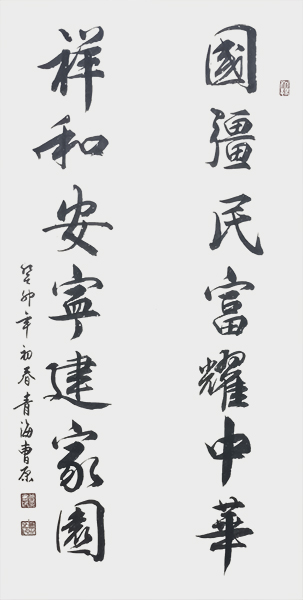 國疆民富耀中華
祥和安寧建家園
癸卯年初春青海曹原